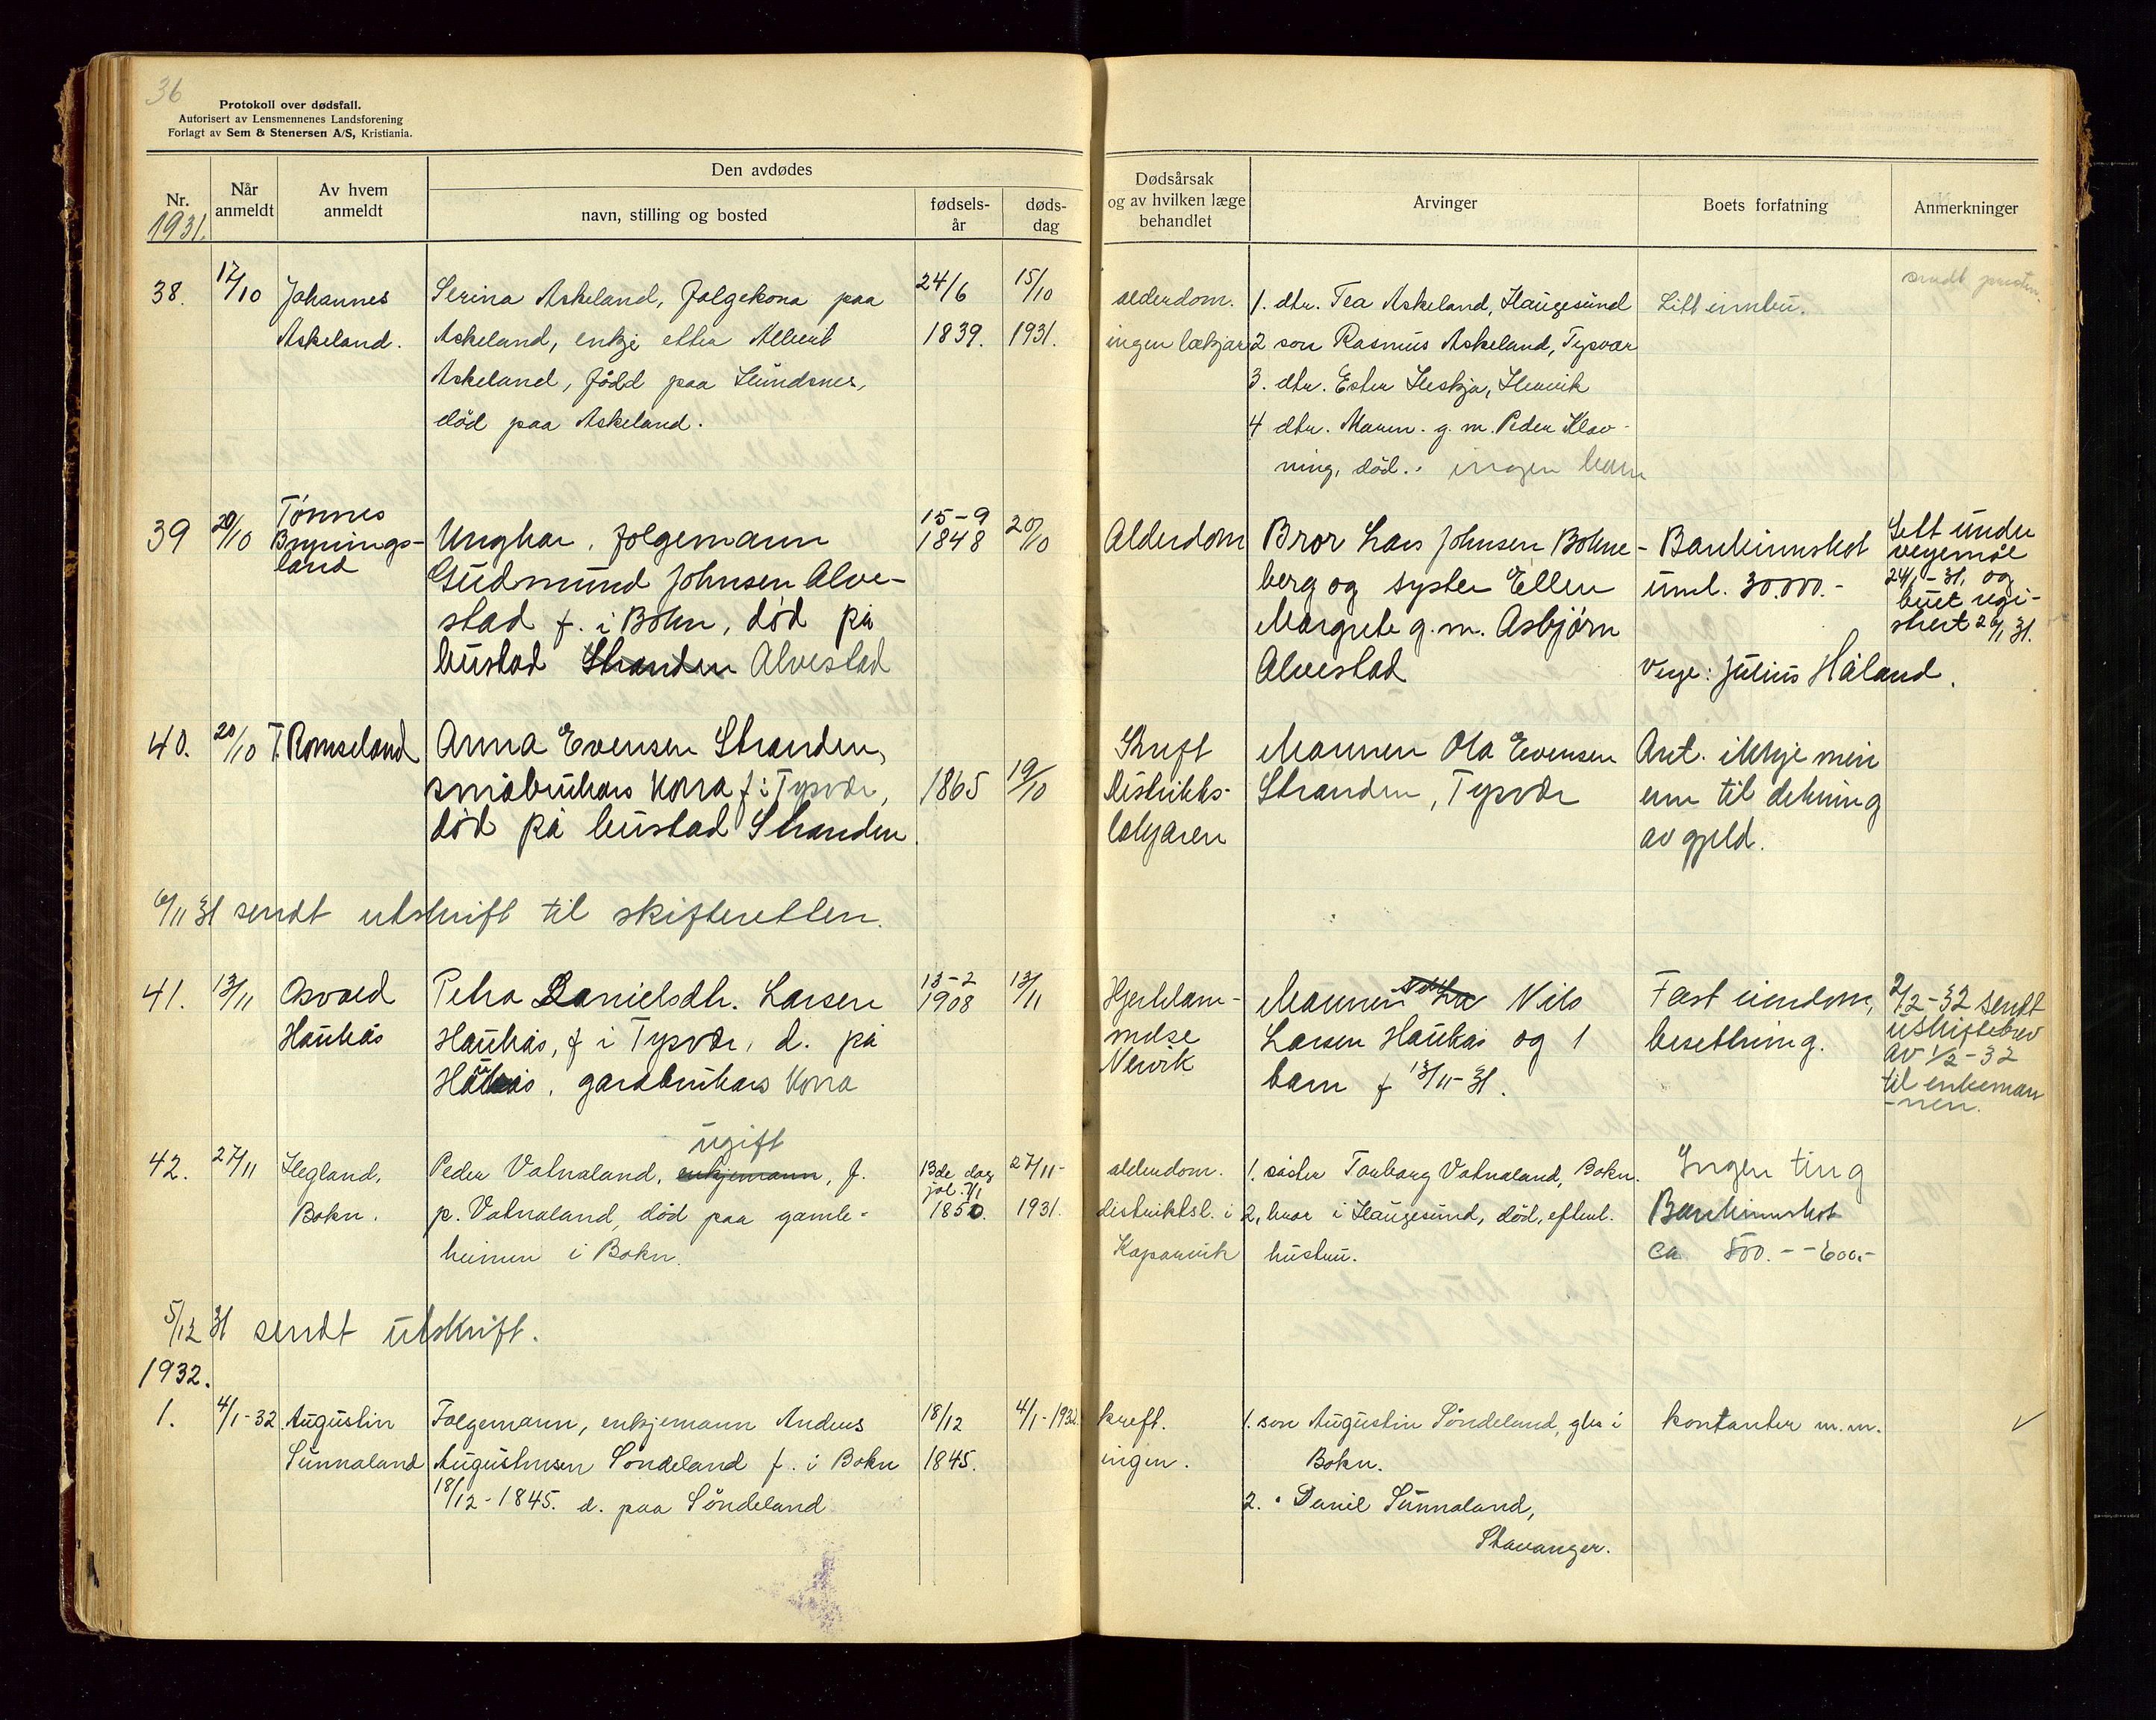 36
Protokoll over dødsfall.
Autorisert av Lensmennenes Landsforening
Forlagt av Sem & Stenersen A/S, Kristiania.
Nr.
1931.
Når anmeldt
Av hvem anmeldt
Den avdødes
navn, stilling og bosted
fødsels-år
døds-dag
Dødsårsak og av hvilken læge behandlet
Arvinger
Boets forfatning
Anmerkninger
38. 17/10 Johannes Askeland.
Serina Askeland, folgekona paa
Askeland, enkje etter Albert
Askeland, född paa Hundsnes,
död paa Askeland.
24/6 1839.
15/10 1931.
alderdom.
ingen lækjar
1. dtr. Tea Askeland, Haugesund
2 son Rasmus Askeland, Tysvær
3. dtr. Ester Heskja, Hervik
4 dtr. Maren. g. m. Peder Klov-
ning, död. ingen barn
Litt innbu.
sendt
39 20/10 Tønnes Brynings-land
Ungkar, folgemann
Gudmund Johnsen Alve-
stad f. i Bokn, død på
bustad Stranden Alvestad
15-9 1848
20/10
Alderdom
Bror Lars Johnsen Bokne-
berg og syster Ellen
Margrete g. m. Asbjørn
Alvestad
Bankinnskot
uml. 30.000.-
Verje: Julius Håland.
Sett under
vergemål
24/1-31, og
buet regi-
strert 26/1 31.
40. 20/10 T. Romseland
Anna Evensen Stranden,
småbrukars kona f. i Tysvær,
død på bustad Stranden.
1865
19/10
Kreft
Distrikts-
lækjaren
Mannen Ola Evensen
Stranden, Tysvær
Ant. ikkje meir
enn til dekning
av gjeld.
6/11 31 sendt utskrift til skifteretten.
41. 13/11 Osvald Haukås
Petra Danielsdtr. Larsen
Haukås, f i Tysvær, d. på
Haukås, gardbrukars kona
13-2 1908
13/11
Hjertelam-
melse
Nervik
Mannen Nils
Larsen Haukås og 1
barn f 13/11-31.
Fast eiendom,
besetning.
2/2-32 sendt
uskiftebrev
av 1/2-32
til enkeman
-nen.
42. 27/11 Hegland, Bokn.
ugift
Peder Vatnaland, enkjemann, f.
p. Vatnaland, död paa gamle-
heimen i Bokn.
13de dag
jol. 7/1
1850.
27/11-
1931.
alderdom.
distriktsl. i
Kopervik
1. söster Torborg Vatnaland, Bokn.
2, bror i Haugesund, död, efterl.
hustru.
Ingen ting
Bankinnskot
ca 500.- - 600.-
5/12 31 sendt utskrift.
1932.
1. 4/1-32 Augustin Sunnaland
Folgemann, enkjemann Anders
Augustinsen Söndeland f. i Bokn
18/12-1845. d. paa Söndeland
18/12 1845.
4/1-1932
kreft.
ingen.
1. son Augustin Söndeland, gbr i
Bokn.
2. " Daniel Sunnaland,
Stavanger.
kontanter m.m.
✓